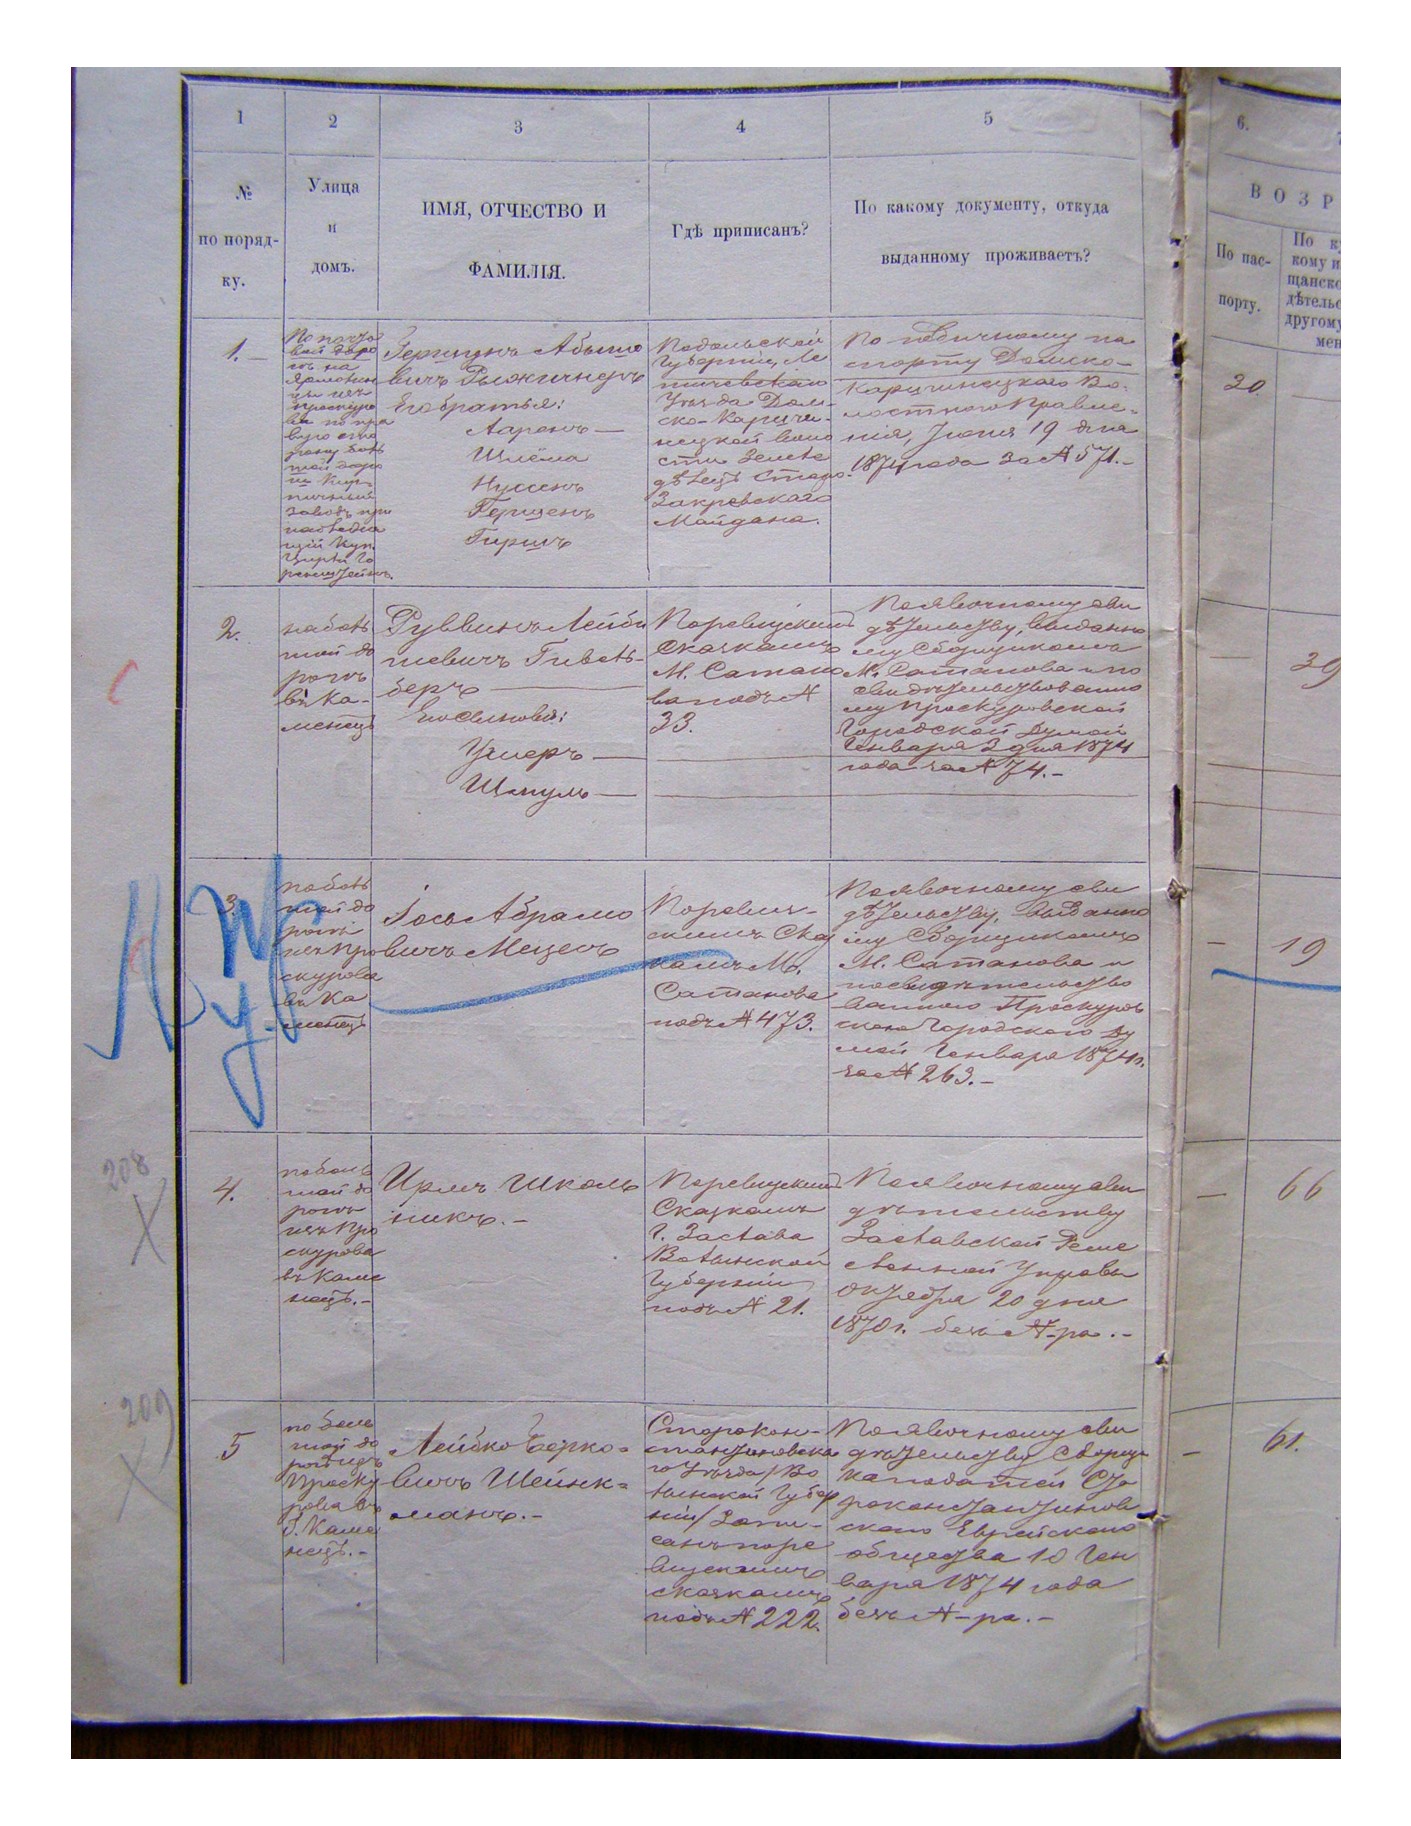 1
2
3
4
5
6.
№
по поряд-
ку.
Улица
и
домъ.
ИМЯ, ОТЧЕСТВО И
ФАМИЛІЯ.
Гдѣ приписанъ?
По какому документу, откуда
выданному проживаетъ?
ВОЗР
По пас-
порту.
По к
кому и
щанско
дѣтельс
другому
мен
1.
По почто
вой доро
гѣ на
Ярмолин
цы изъ
Проскуро
ва по пра
вую сто
рону боль
шой доро
ги Кир
пичный
заводъ при
надлежа
щій Куп.
Гершунъ Абрамо
вичъ
Его братья:
Ааронъ
Шлёма
Нусенъ
Гершенъ
Гиршъ
Подольской
Губерніи, Ле
тичевскаго
Уѣзда Дом-
ско-Карачи-
нецкой воло
сти Земле
дѣлецъ Старо-
Закревскаго
Майдана.
По годичному па
спорту Домско-
Карачинецкаго Во-
лостного Правле-
нія, Іюня 19 дня
1874 года за № 571.
20
2.
на боль
шой до
рогѣ
въ Ка-
менецъ
Руввинъ Лейби
шевичъ Гивель-
беръ
Его сыновья:
Ушеръ
Шмуль
По ревизскимъ
Сказкамъ
М. Сатано
ва подъ №
33.
По явочному сви
дѣтельству, выданно
му Сборщикомъ
М. Сатанова и по
свидѣтельствованно
му Проскуровской
Городской Думой
Генваря 2 дня 1874
года за № 74.
39
3.
по боль
шой до
рогѣ
изъ Про
скурова
въ Ка
менецъ
Іось Абрамо
вичъ Мецесъ
По ревиз-
скимъ Ска
камъ М.
Сатанова
подъ № 473.
По явочному сви
дѣтельству, выданно
му Сборщикомъ
М. Сатанова и
посвидѣтельство
ванного Проскуров
скою Городского Ду
мой Генваря 1874 г.
за № 263.
19
208
4.
по боль
шой до
рогѣ
изъ Про
скурова
въ Каме
нецъ.
Ирмъ Школь
никъ.
По ревизскимъ
Сказкамъ
г. Заслава
Волынской
Губерніи
подъ № 21.
По явочному сви
дѣтельству
Заславской Реме
сленной Управы
Октября 20 дня
1870 г. безъ №-ра.
66
209
5
по боль
шой до
рогѣ изъ
Проску
рова въ
Г. Каме
нецъ.
Лейбко Берко-
вичъ Шейнк-
манъ.
Старокон-
стантиновска
го Уѣзда /Во
лынской Губер
ніи/ Запи-
санъ по ре
визскимъ
сказкамъ
подъ № 222.
По явочному сви
дѣтельству Сборщи
ка податей Ста
роконстантинов
скаго Еврейскаго
общества 10 Ген
варя 1874 года
безъ №-ра.
61.